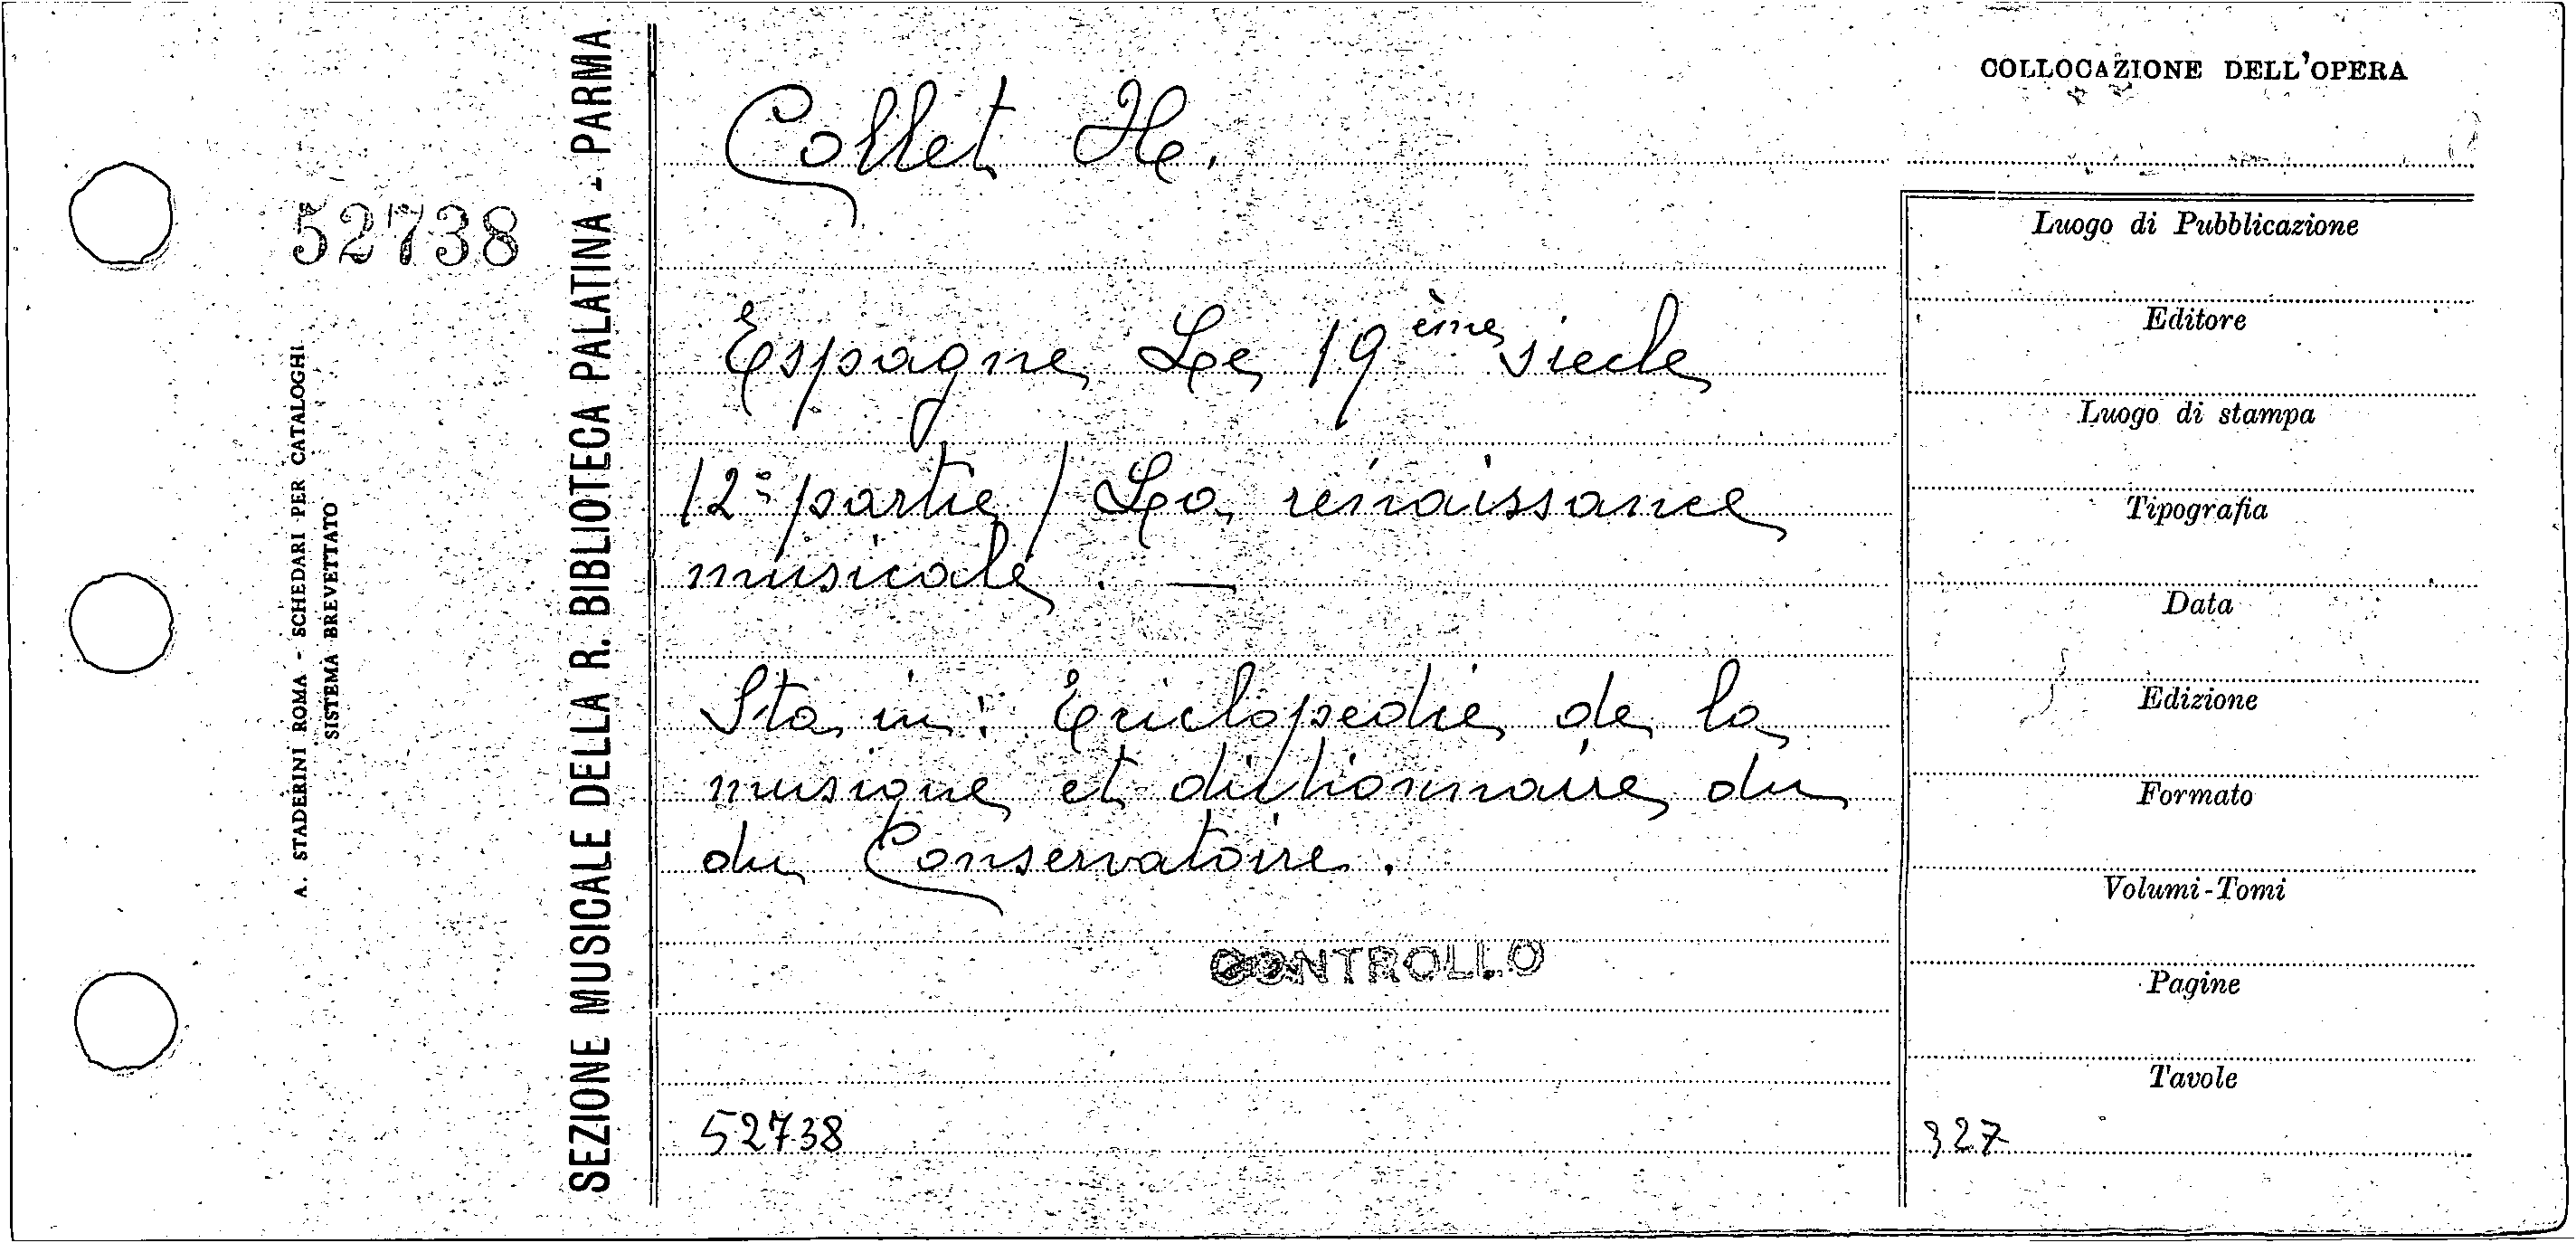 COLLOCAZIONE DELL'OPERA
Collet H.
52738
Espagne Le 19ème siecle
/2ª partie/ La rénaissance
musicale. —
Sta in: Enciclopedie de la
musique et dictionnaire du
du Conservatoire.
CONTROLLO
52738
Luogo di Pubblicazione
Editore
Luogo di stampa
Tipografia
Data
Edizione
Formato
Volumi-Tomi
Pagine
Tavole
327
SEZIONE MUSICALE DELLA R. BIBLIOTECA PALATINA - PARMA
A. STADERINI ROMA - SCHEDARI PER CATALOGHI
SISTEMA BREVETTATO